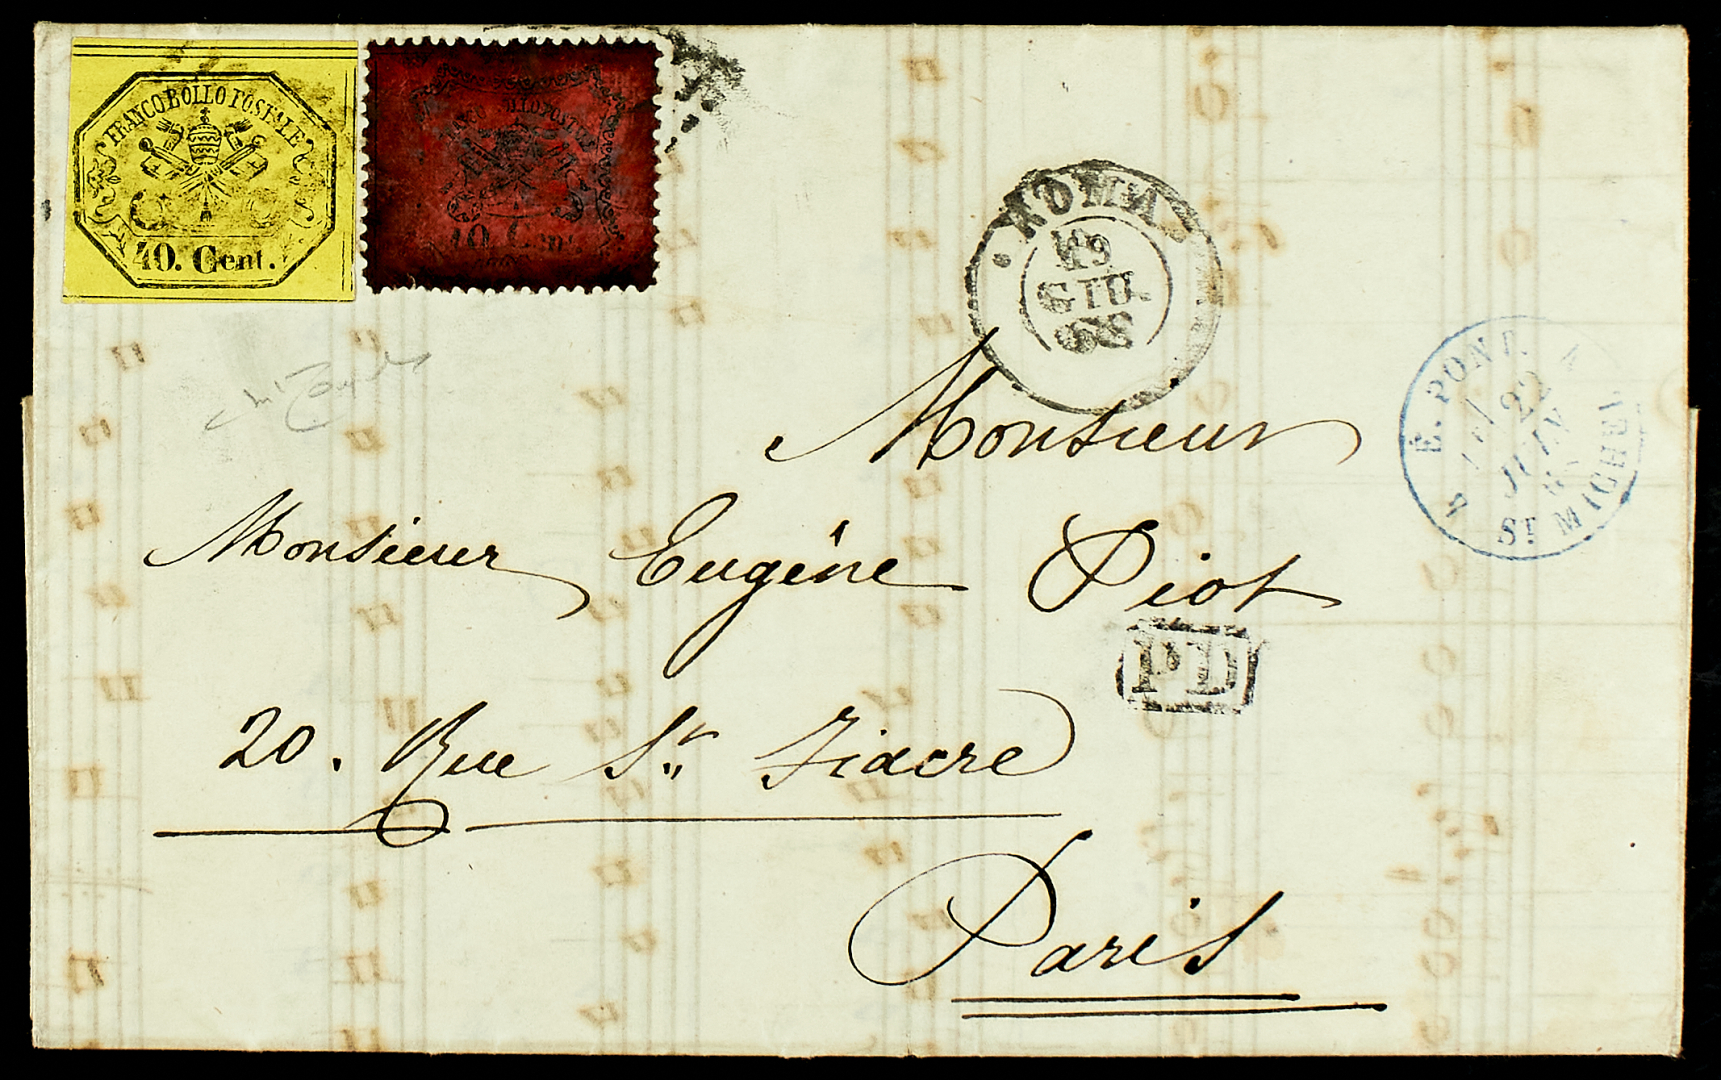 FRANCO BOLLO POSTALE
40. Cent.
10. Cent.
ROMA
19
GIU
68
E. PONT.
22
JUIN
68
ST MICHEL
Monsieur
Monsieur Eugène Piot
PD
20. Rue St. Fiacre
Paris